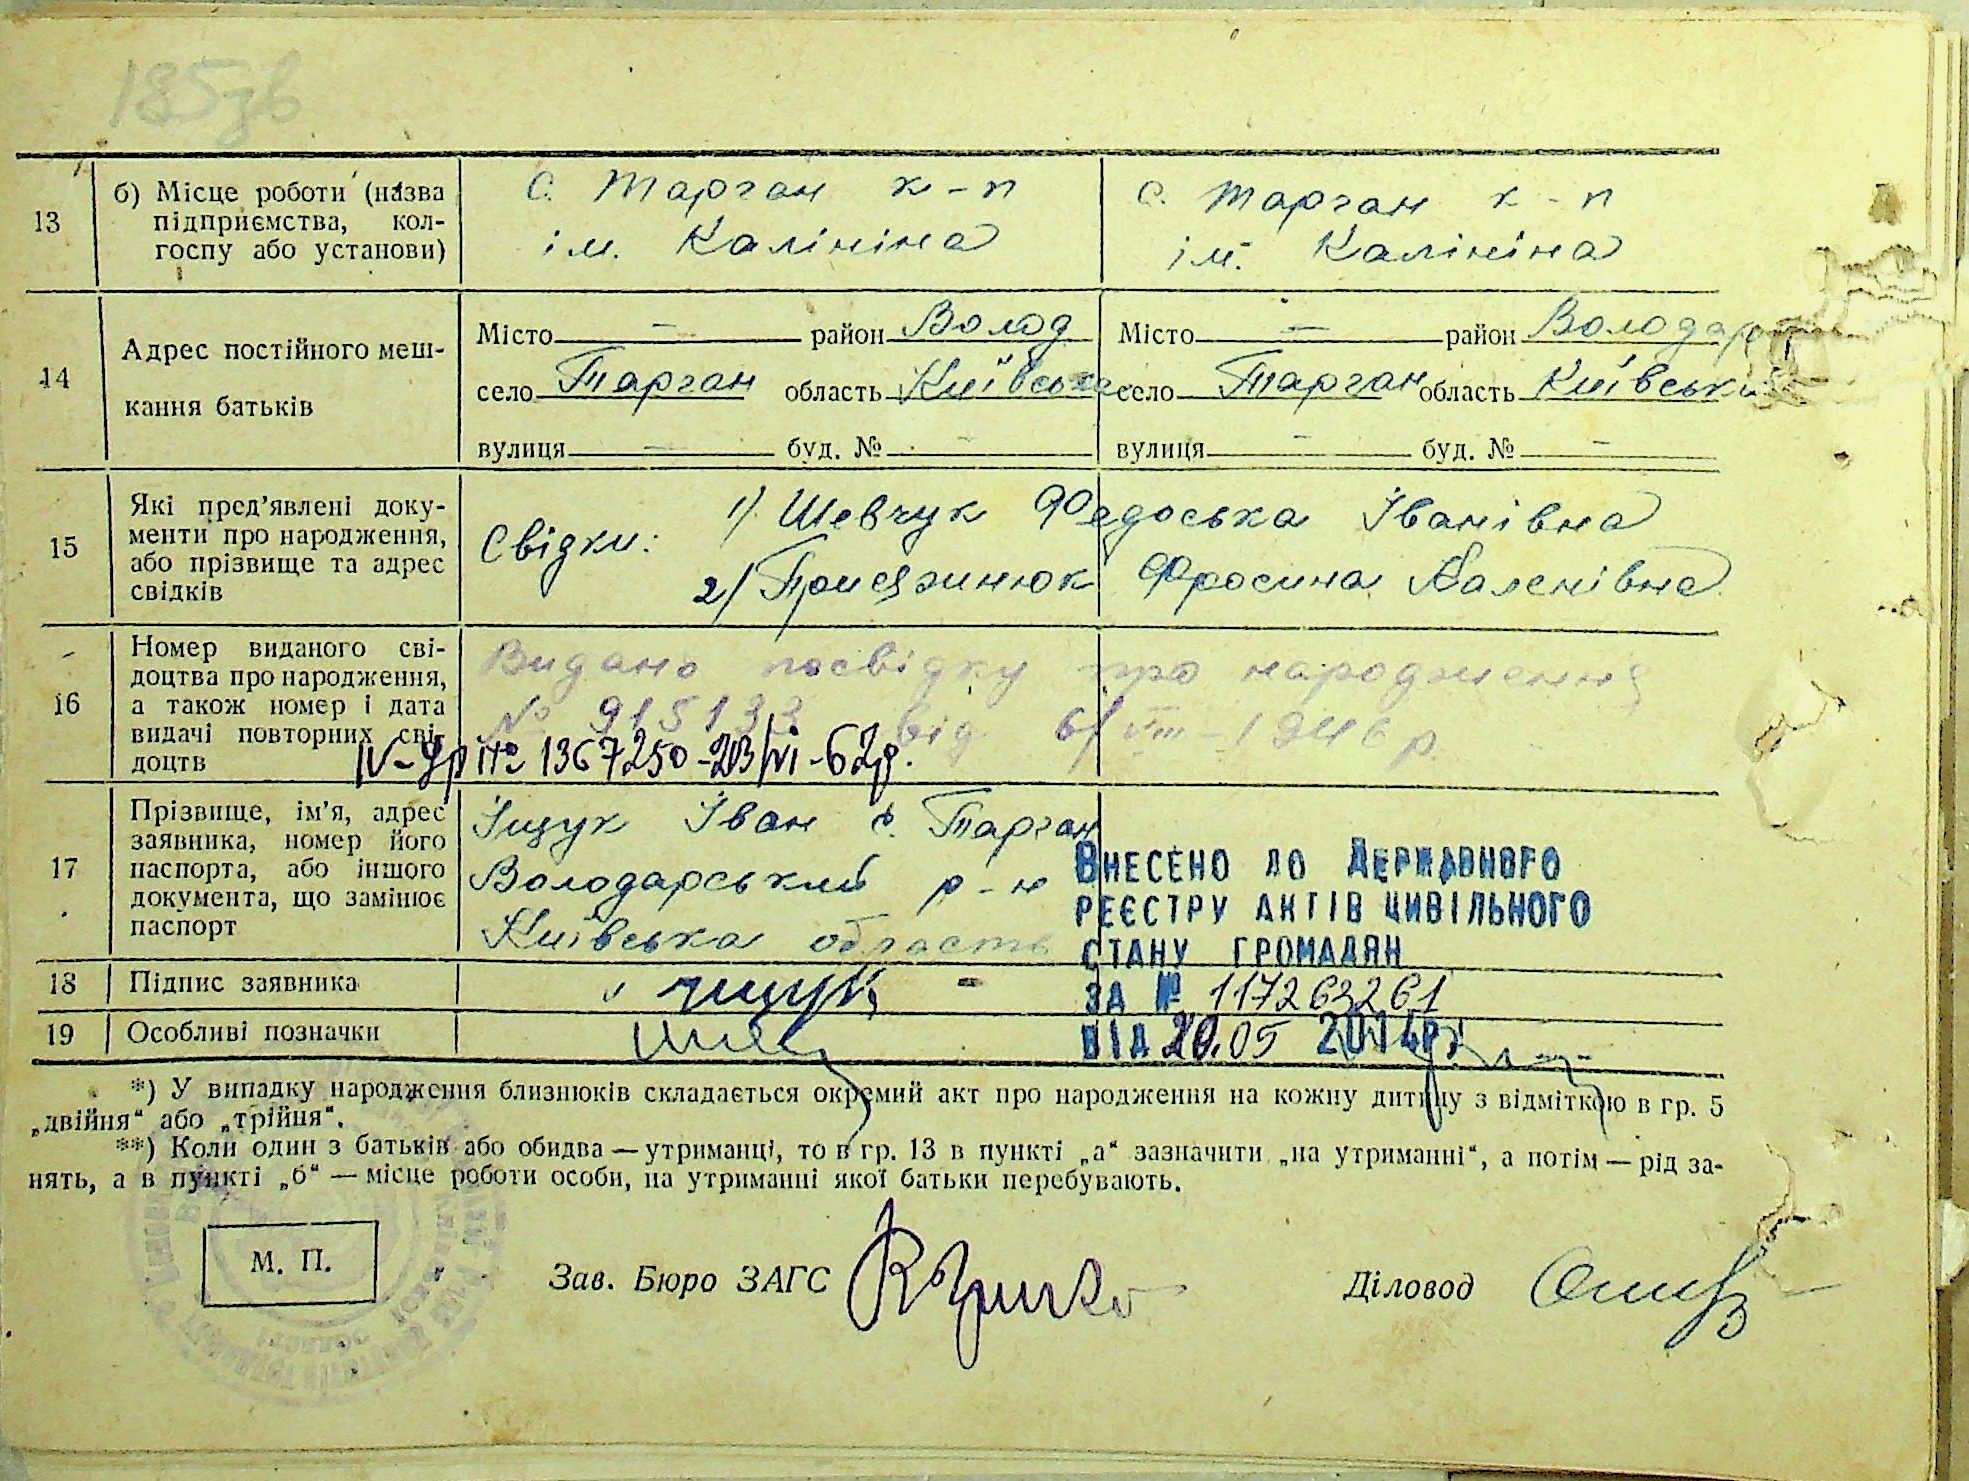 185зв
13
б) Місце роботи (назва
підприємства, кол-
госпу або установи)
с. Тарган к-п
ім. Калініна
с. Тарган к-п
ім. Калініна
14
Адрес постійного меш-
кання батьків
Місто — район Волод
село Тарган область Київська
вулиця — буд. № -
Місто — район Володар
село Тарган область Київськ
вулиця — буд. № -
15
Які пред’явлені доку-
менти про народження,
або прізвище та адрес
свідків
Свідки: 1) Шевчук Федоська Іванівна
2) Присяжнюк Фросина
16
Номер виданого сві-
доцтва про народження,
а також номер і дата
видачі повторних сві-
доцтв
Видано посвідку про народження
№ 915133 від 6/VIII 1946 р.
№ 1367250 62р.
17
Прізвище, ім’я, адрес
заявника, номер його
паспорта, або іншого
документа, що замінює
паспорт
Іщук Іван с. Тарган
Володарський р-н
Київська область
ВНЕСЕНО ДО ДЕРЖАВНОГО
РЕЄСТРУ АКТІВ ЦИВІЛЬНОГО
СТАНУ ГРОМАДЯН
ЗА № 117263261
ВІД 20.05 2014р.
18
Підпис заявника
іщук
19
Особливі позначки
*) У випадку народження близнюків складається окремий акт про народження на кожну дитину з відміткою в гр. 5
„двійня“ або „трійня“.
**) Коли один з батьків або обидва — утриманці, то в гр. 13 в пункті „а“ зазначити „на утриманні“, а потім — рід за-
нять, а в пункті „б“ — місце роботи особи, на утриманні якої батьки перебувають.
М. П.
Зав. Бюро ЗАГС
Діловод